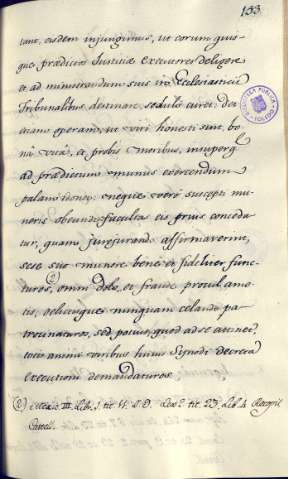 133
tant, eisdem injungimus, ut eorum quis-
que prædictos Justitiæ executores deligere
et ad ministrandum suis in Ecclesiasticis
Tribunalibus destinare sedulo curet: Dei
operam, ut viri honesti sint, bo-
næ vitæ, et probis moribus, insuperq
ad prædictum munus exercendum
palam idonei: neque veri suscepti mu-
neris obeundi facultas eis prius conceda-
tur, quam jurejurando affirmaverint,
sese suo munere bene et fideliter func-
turos, (2) omni dolo, et fraude procul amo-
tis, delicuque nunquam celando pa-
trocinaturos, sed potius, quod ad se attinet,
totis animi viribus hujus Synodi decreta
executioni demandaturos
(2) III. Lib. I. tit. 4. S. D. Lex 2. tit. 23. Lib. 4. Recopil
Castell.
BIBLIOTECA PUBLICA
TOLEDO